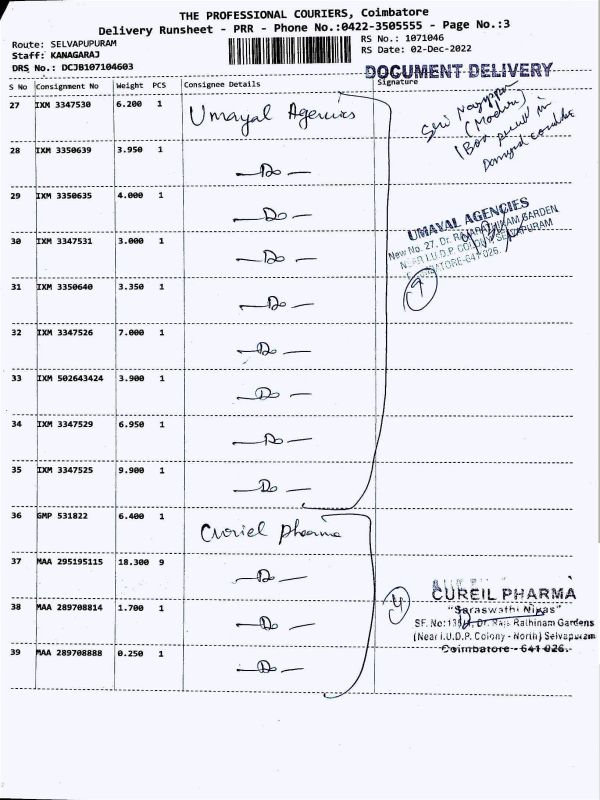 THE PROFESSIONAL COURIERS, Coimbatore
Delivery Runsheet - PRR - Phone No.:0422-3505555 - Page No.:3
Route: SELVAPUPURAM
RS No.: 1071046
Staff: KANAGARAJ
RS Date: 02-Dec-2022
DRS No.: DCJB107104603
DOCUMENT DELIVERY
S No Consignment No Weight PCS Consignee Details Signature
27 IXM 3347530 6.200 1 Umayal Agencies
(Madurai)
1 Box
in
28 IXM 3350639 3.950 1 - Do -
29 IXM 3350635 4.000 1 - Do -
UMAYAL AGENCIES
New No. 27, Dr. RAJARATHINAM GARDEN
NEAR I.U.D.P. COLONY SELVAPURAM
COIMBATORE-641 026.
30 IXM 3347531 3.000 1 - Do -
9
31 IXM 3350640 3.350 1 - Do -
32 IXM 3347526 7.000 1 - Do -
33 IXM 502643424 3.900 1 - Do -
34 IXM 3347529 6.950 1 - Do -
35 IXM 3347525 9.900 1 - Do -
36 GMP 531822 6.400 1 Curiel Pharma
37 MAA 295195115 18.300 9 - Do -
CUREIL PHARMA
"Saraswathi Nivas"
4
38 MAA 289708814 1.700 1 - Do -
SF. No: Dr. Raja Rathinam Gardens
(Near I.U.D.P. Colony - North) Selvapuram
Coimbatore - 641 026.
39 MAA 289708888 0.250 1 - Do -